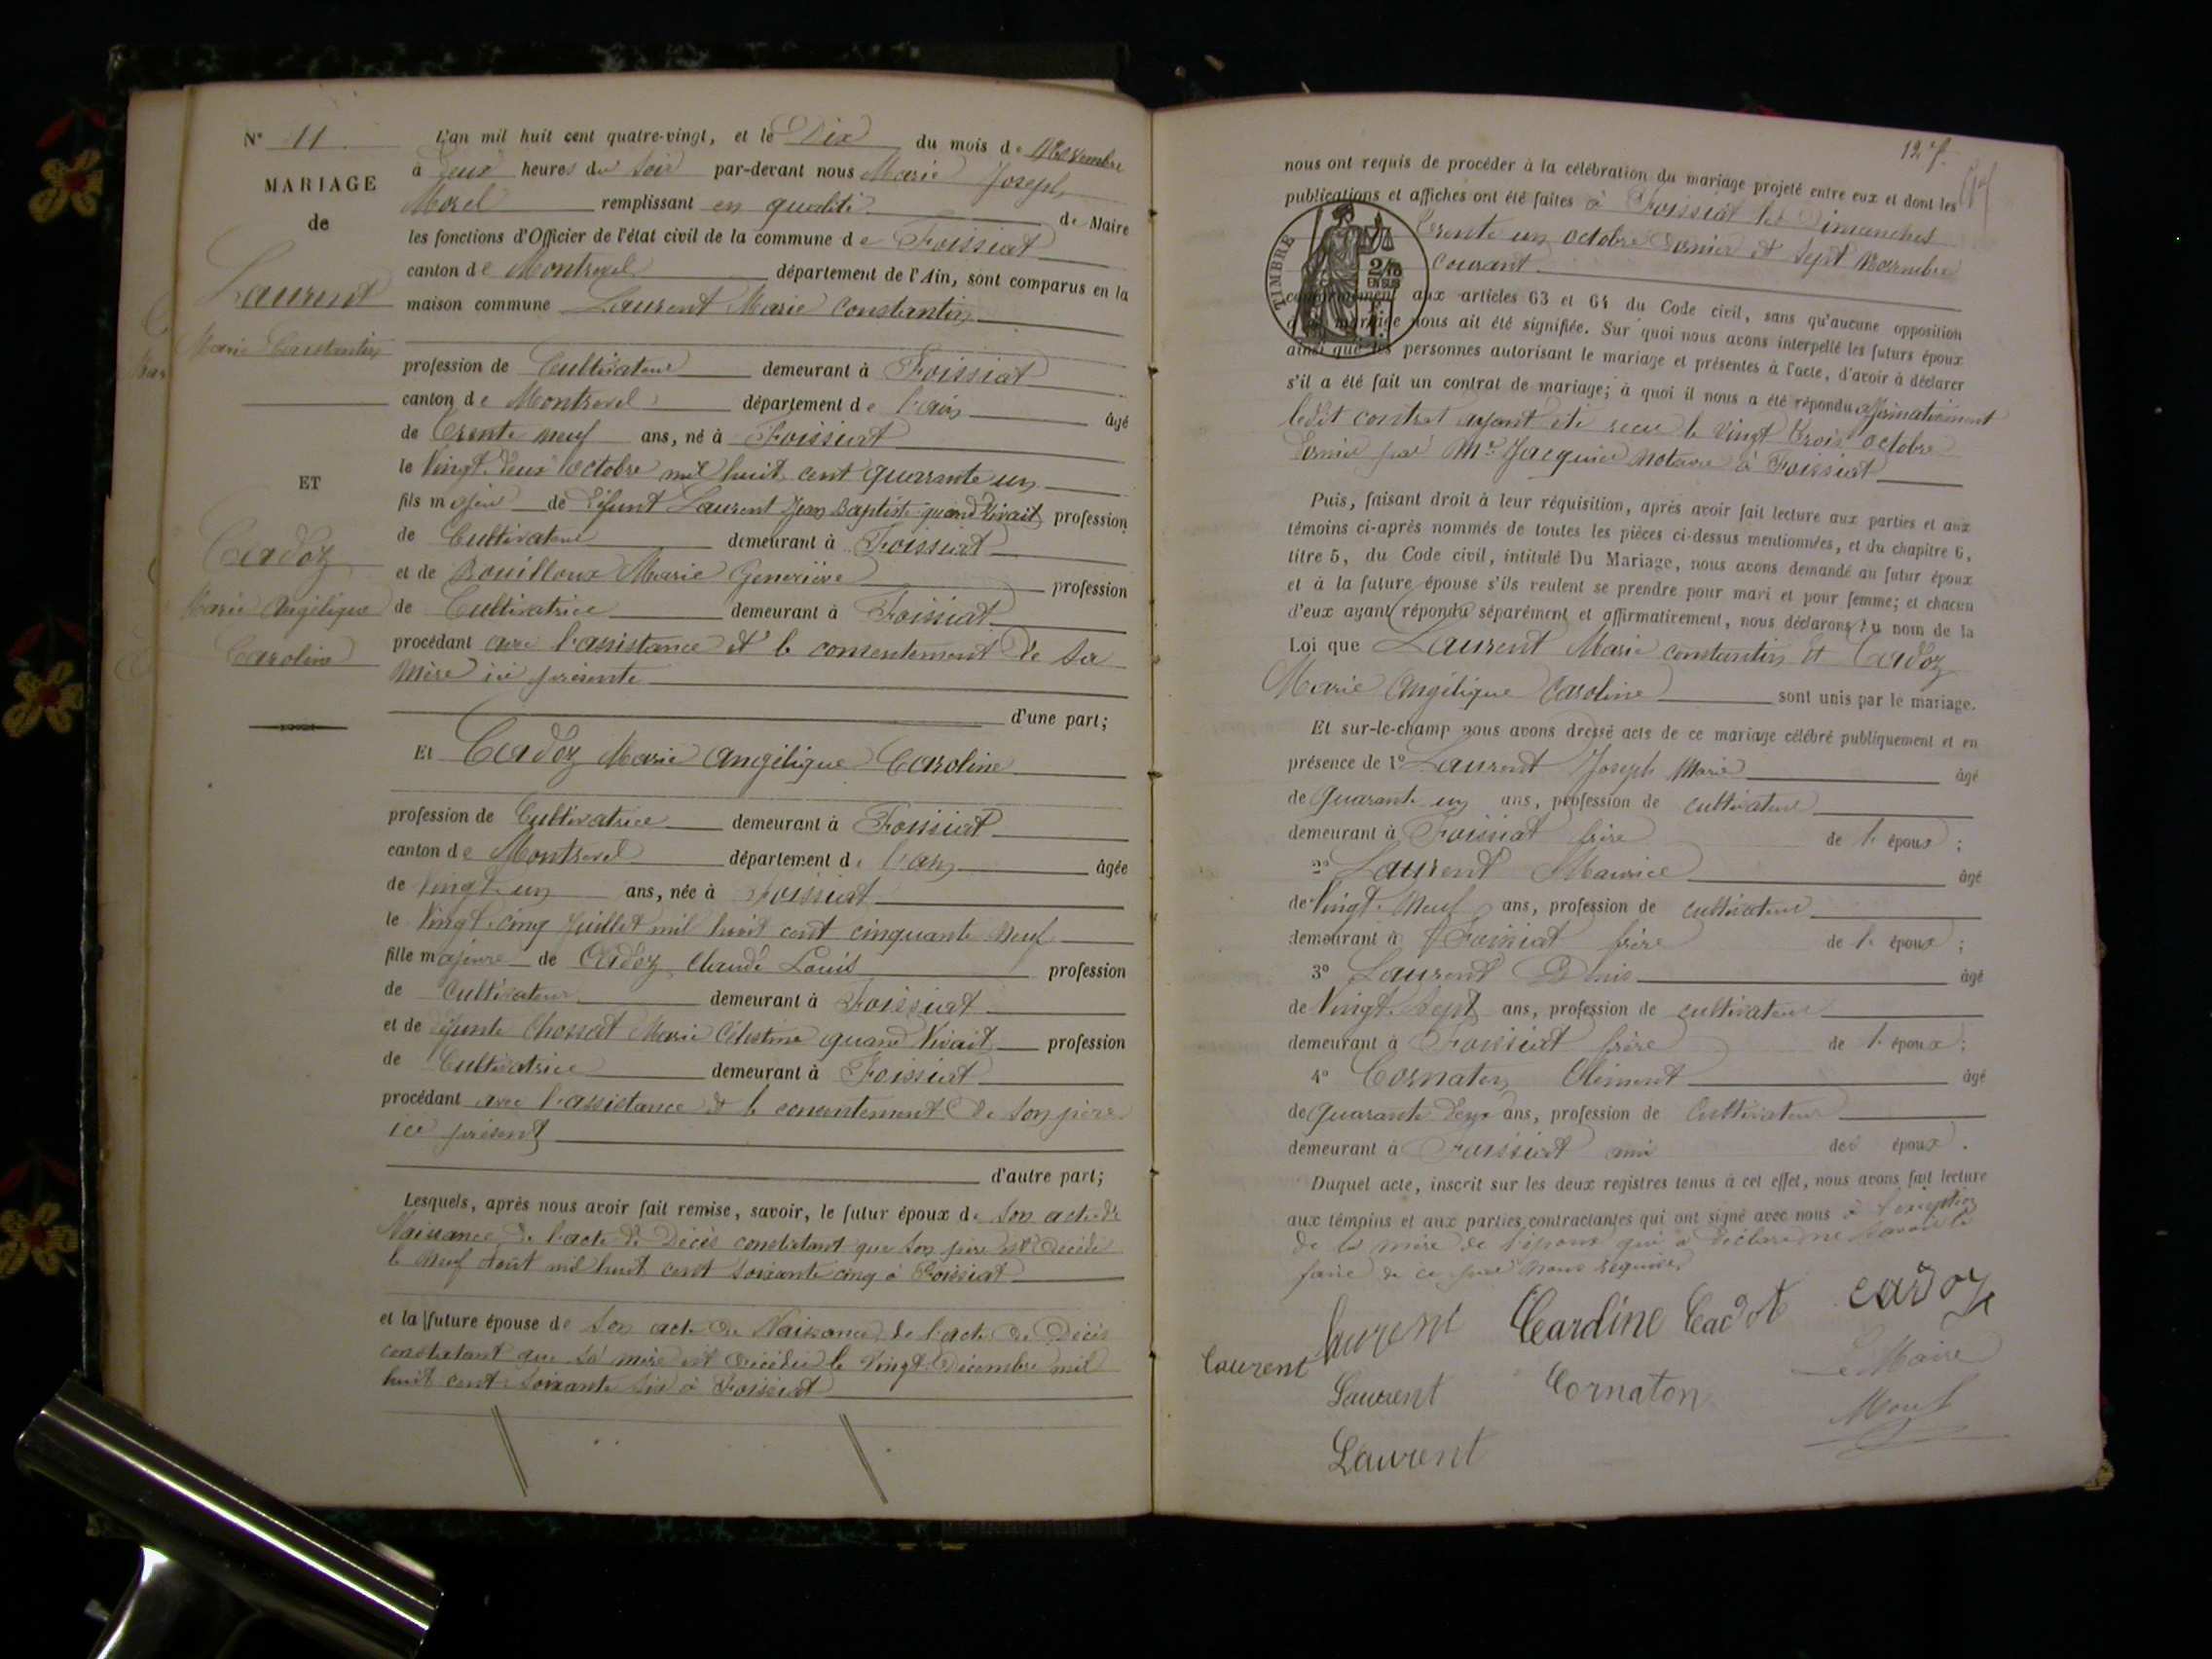 N° 11
MARIAGE
de
Laurent
Marie Constantin
ET
Cadoz
Marie Angélique
Caroline
L'an mil huit cent quatre-vingt, et le Dix du mois de Novembre
à Deux heures du soir par-devant nous Marie Joseph
Morel remplissant en qualité de Maire
les fonctions d'Officier de l'état civil de la commune de Foissiat
canton de Montrevel département de l'Ain, sont comparus en la
maison commune Laurent Marie Constantin
profession de Cultivateur demeurant à Foissiat
canton de Montrevel département de l'ain âgé
de trente neuf ans, né à Foissiat
le Vingt deux octobre mil huit cent quarante un
fils majeur de Défunt Laurent Jean Baptiste quand Vivait profession
de Cultivateur demeurant à Foissiat
et de Bouilloux Marie Geneviève profession
de Cultivatrice demeurant à Foissiat
procédant avec l'assistance et le consentement de sa
Mère ici présente
d'une part;
Et Cadoz Marie Angélique Caroline
profession de Cultivatrice demeurant à Foissiat
canton de Montrevel département de l'ain âgée
de Vingt un ans, née à Foissiat
le Vingt cinq Juillet mil huit cent cinquante neuf
fille majeure de Cadoz Claude Louis profession
de cultivateur demeurant à Foissiat
et de défunte Chossat Marie Célestine quand Vivait profession
de Cultivatrice demeurant à Foissiat
procédant avec l'assistance et le concentement de son père
ici présent
d'autre part;
Lesquels, après nous avoir fait remise, savoir, le futur époux de son acte de
Naissance de l'acte de Décès constatant que son père est décédé
le neuf Août mil huit cent soixante cinq à Foissiat
et la future épouse de son acte de Naissance de l'acte de Décès
constatant que sa mère est décédée le Vingt Décembre mil
huit cent soixante six à Foissiat
127.
nous ont requis de procéder à la célébration du mariage projeté entre eux et dont les
publications et affiches ont été faites à Foissiat les Dimanches
trente un octobre dernier et sept Novembre
courant
TIMBRE
2/10
EN SUS
conformément aux articles 63 et 64 du Code civil, sans qu'aucune opposition
à ce mariage nous ait été signifiée. Sur quoi nous avons interpellé les futurs époux
ainsi que les personnes autorisant le mariage et présentes à l'acte, d'avoir à déclarer
s'il a été fait un contrat de mariage; à quoi il nous a été répondu affirmativement
ledit contrat ayant été reçu le vingt trois octobre
dernier par Me Jacquier Notaire à Foissiat
Puis, faisant droit à leur réquisition, après avoir fait lecture aux parties et aux
témoins ci-après nommés de toutes les pièces ci-dessus mentionnées, et du chapitre 6,
titre 5, du Code civil, intitulé Du Mariage, nous avons demandé au futur époux
et à la future épouse s'ils veulent se prendre pour mari et pour femme; et chacun
d'eux ayant répondu séparément et affirmativement, nous déclarons au nom de la
Loi que Laurent Marie constantin et Cadoz
Marie Angélique Caroline sont unis par le mariage.
Et sur-le-champ nous avons dressé acte de ce mariage célébré publiquement et en
présence de 1° Laurent Joseph Marie âgé
de quarante un ans, profession de cultivateur
demeurant à Foissiat frère de l' époux ;
2° Laurent Maurice âgé
de Vingt Neuf ans, profession de cultivateur
demeurant à Foissiat frère de l' époux ;
3° Laurent Denis âgé
de Vingt Sept ans, profession de cultivateur
demeurant à Foissiat frère de l' époux ;
4° Cornaton Clément âgé
de quarante deux ans, profession de Cultivateur
demeurant à Foissiat ami des époux .
Duquel acte, inscrit sur les deux registres tenus à cet effet, nous avons fait lecture
aux témoins et aux parties contractantes qui ont signé avec nous à l'exception
de la mère de l'époux qui a déclaré ne savoir le
faire de ce par nous requise
Laurent Caroline Cadot cadoz
Laurent
Le Maire
Laurent Cornaton
Morel
Laurent